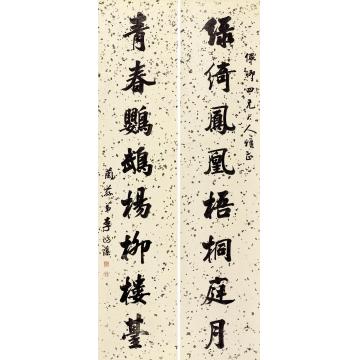 綠綺鳳凰梧桐庭月
四兄大人雅正
青春鸚鵡楊柳樓臺
弟李